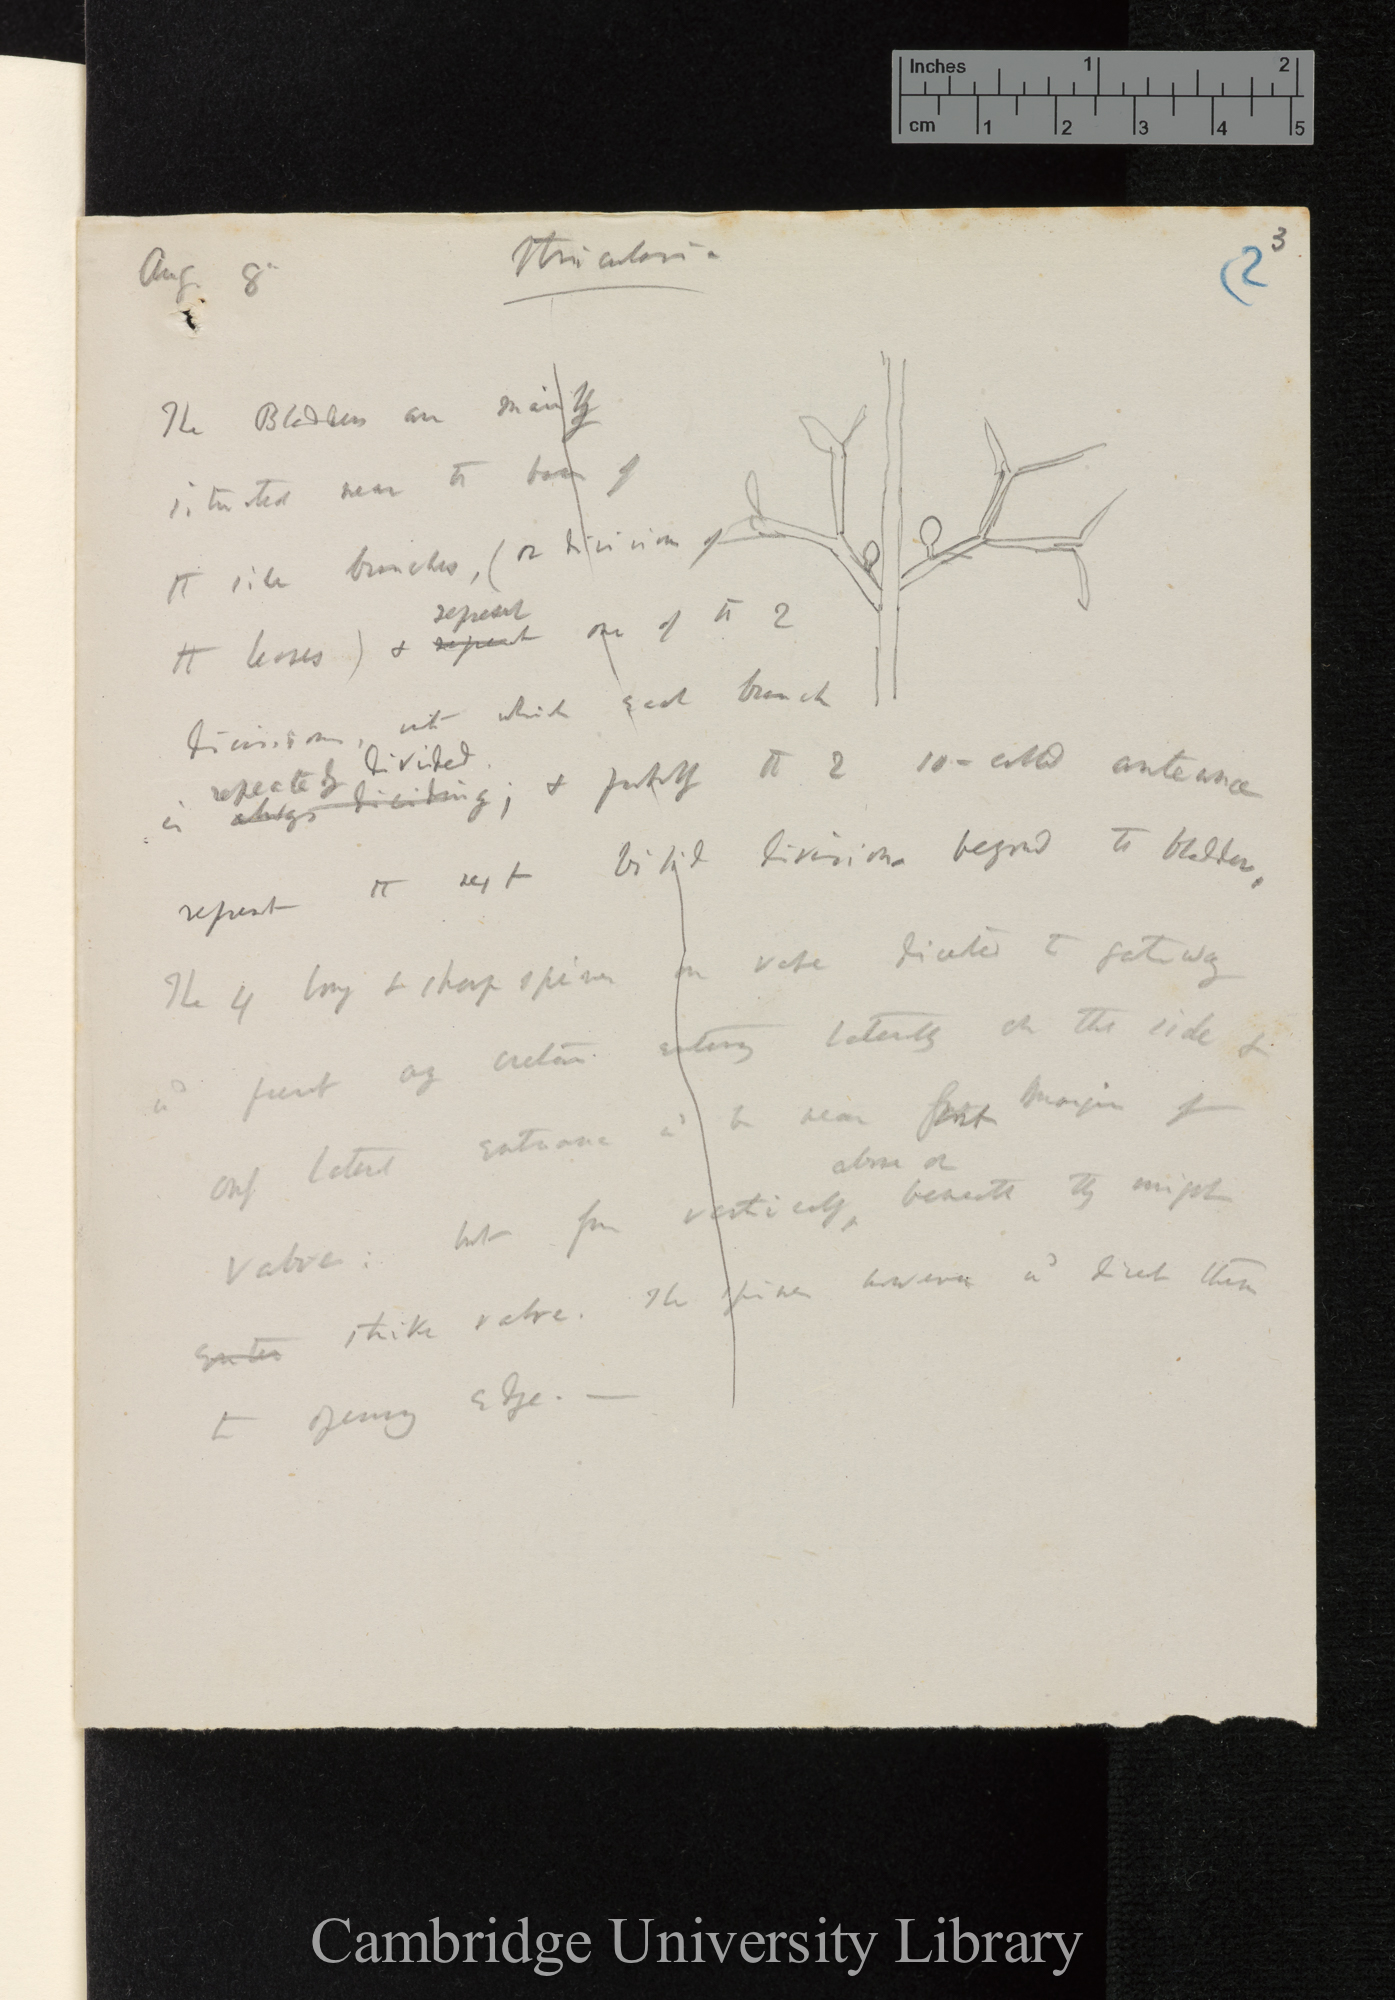 Inches 1 2
cm 1 2 3 4 5
3
(2
Aug. 8
Utricularia
The Bladders are mainly
situated near the base of
the side branches, (or division of
the leaves) & repeat
repeat one of the 2
divisions, into which each branch
repeatedly divided.
is always dividing; & probably the 2 so-called antennæ
represent the next bifid divisions beyond the bladder.
The 4 long & sharp spines on valve directed to gateway
wd prevent any creature entering laterally on the side &
only lateral entrance wd be near margin of
above or
Valve: but from vertically, beneath they might
enter strike valve. The spines however wd direct them
to opening edge. —
Cambridge University Library